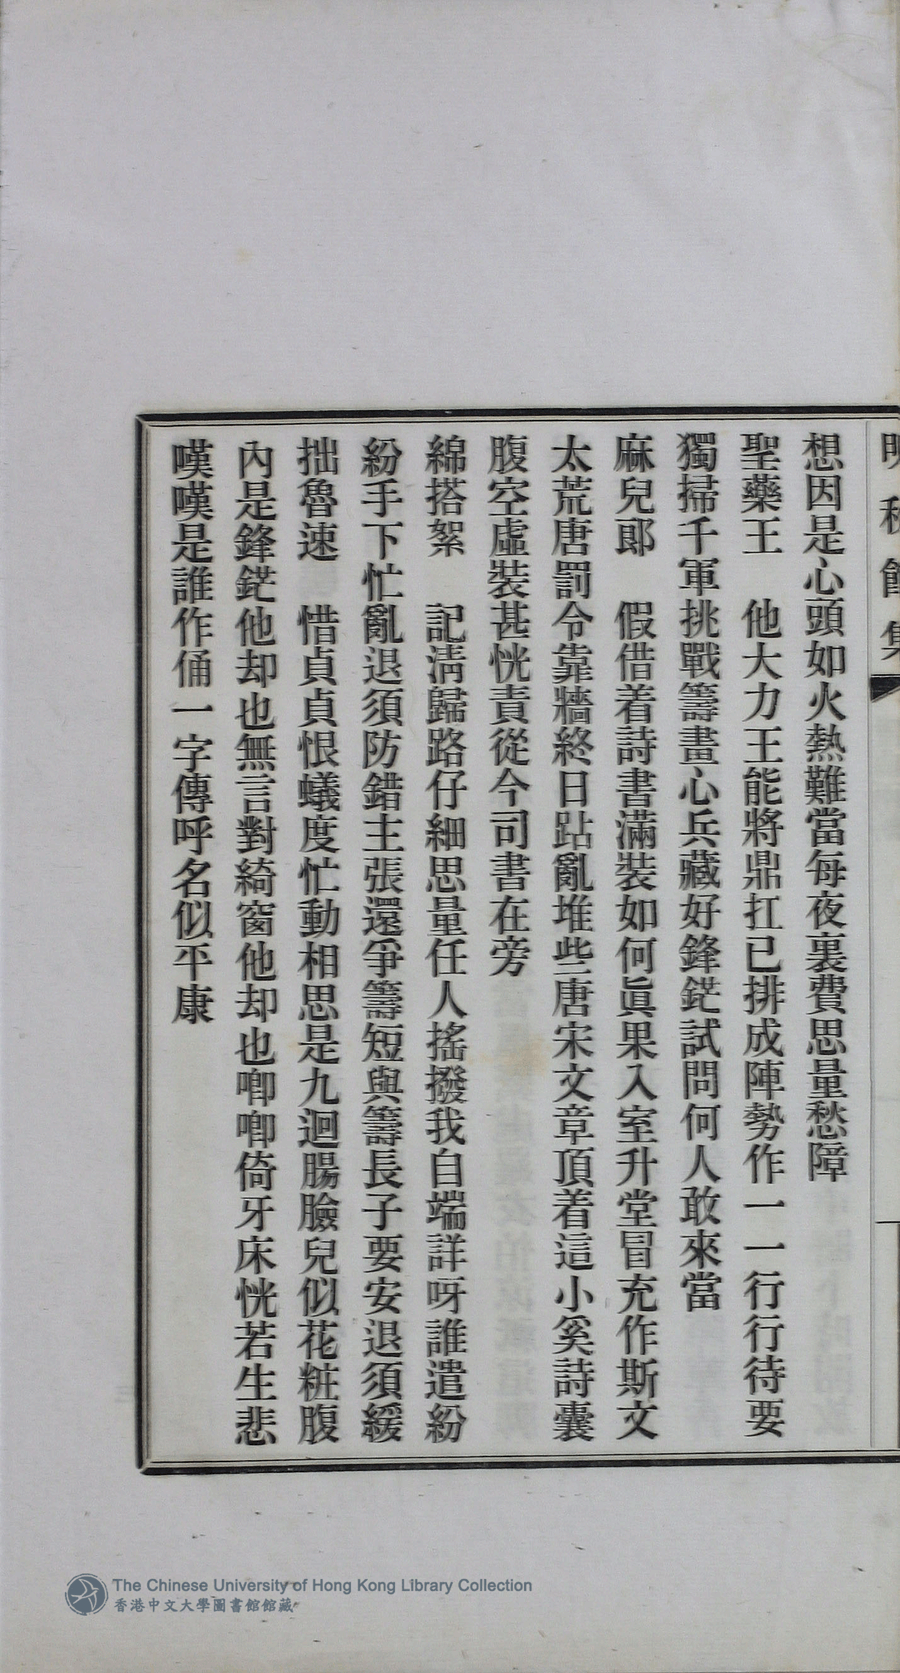 秋館集
想因是心頭如火熱難當每夜裏費思量愁障
聖藥王　他大力王能將鼎扛已排成陣勢作一一行行待要
獨掃千軍挑戰籌畫心兵藏好鋒鋩試問何人敢來當
麻兒郞　假借着詩書滿裝如何眞果入室升堂冒充作斯文
太荒唐罰令靠牆終日跕亂堆些唐宋文章頂着這小奚詩囊
腹空虛裝甚恍責從今司書在旁
綿搭絮　記淸歸路仔細思量任人搖撥我自端詳呀誰遣紛
紛手下忙亂退須防錯主張還爭籌短與籌長子要安退須緩
拙魯速　惜貞貞恨蟻度忙動相思是九迴腸臉兒似花粧腹
內是鋒鋩他却也無言對綺窗他却也喞喞倚牙床恍若生悲
嘆嘆是誰作俑一字傳呼名似平康
The Chinese University of Hong Kong Library Collection
香港中文大學圖書館館藏